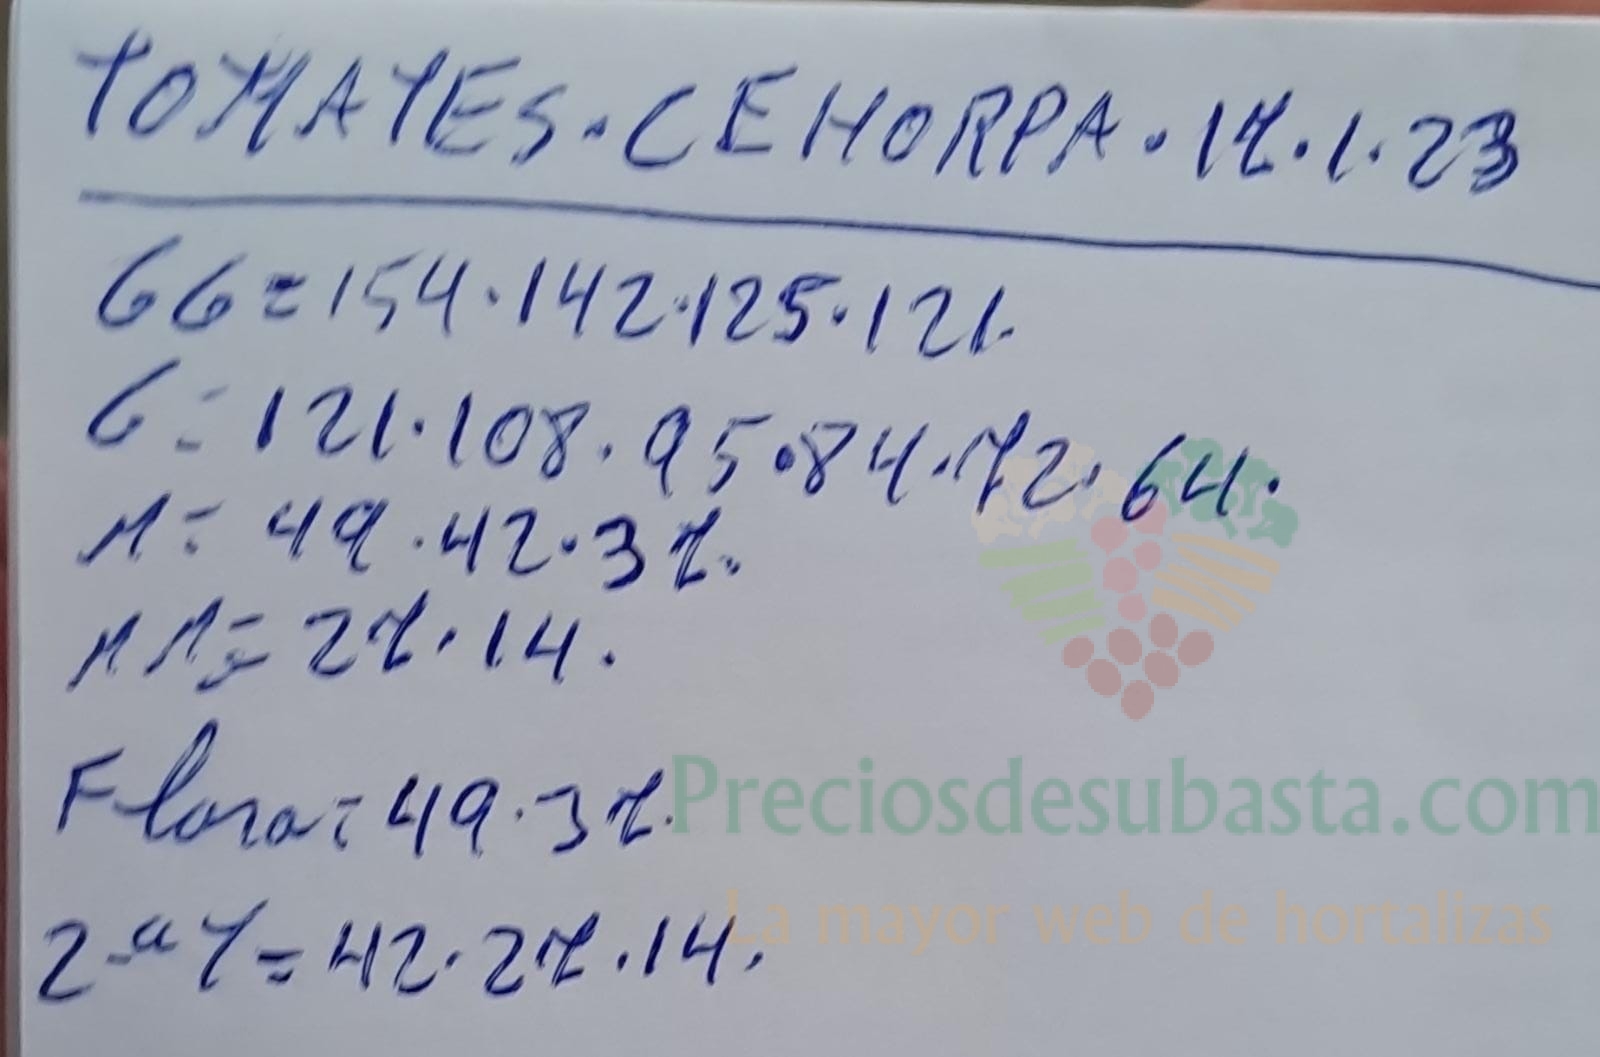 TOMATES.CEHORPA.17.1.23
GG=154.142.125.121.
G=121.108.95.84.72.64.
M=49.42.37.
MM=27.14.
Flora=49.37.
2-aT=42.27.14.
Preciosdesubasta.com
La mayor web de hortalizas